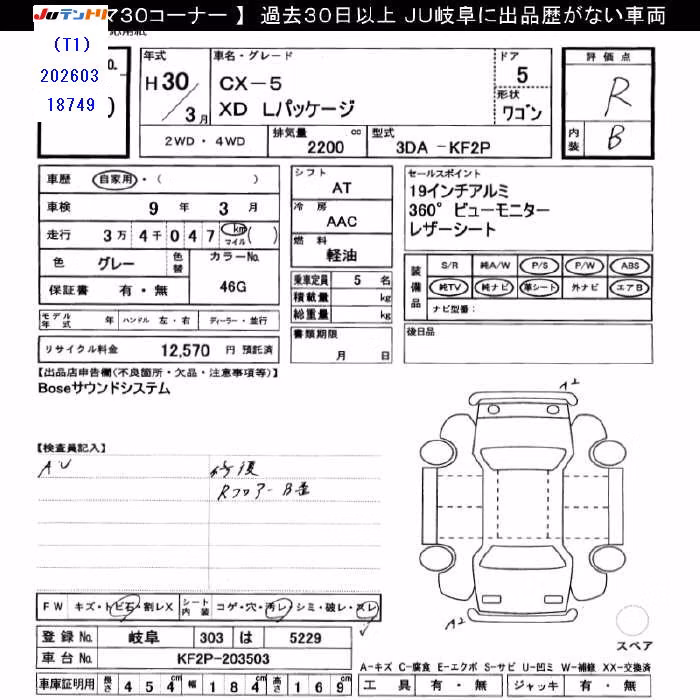 JUテントリ 730コーナー 】 過去30日以上 JU岐阜に出品歴がない車両
(T1)
202603
18749
年式 車名・グレード ドア 評価点
H30 CX-5 5 R
/3月 XD Lパッケージ 形状 ワゴン
2WD・4WD 排気量 2200 cc 型式 3DA -KF2P 内装 B
車歴 自家用・( ) シフト AT セールスポイント
車検 9年 3月 冷房 AAC 19インチアルミ
走行 3万4千047 km マイル ( ) 燃料 軽油 360°ビューモニター
レザーシート
色 グレー 色替 カラーNo. 46G
保証書 有・無
乗車定員 5 名
積載量 kg
総重量 kg
装備品 S/R 純A/W P/S P/W ABS
純TV 純ナビ 革シート 外ナビ エアB
ナビ型番:
モデル年式 年 ハンドル 左・右 ディーラー・並行 書類期限 月 日 後日品
リサイクル料金 12,570 円 預託済
【出品店申告欄(不良箇所・欠品・注意事項等)】
Boseサウンドシステム
A2
【検査員記入】
AU 修復
Rフロアー B重
A2
スペア
FW キズ・トビ石・割レX シート内装 コゲ・穴・汚レ・シミ・破レ・スレ
登録No. 岐阜 303 は 5229
車台No. KF2P-203503
A-キズ C-腐食 E-エクボ S-サビ U-凹ミ W-補修 XX-交換済
車庫証明用 長さ 454cm 幅 184cm 高さ 169cm 工具 有・無 ジャッキ 有・無